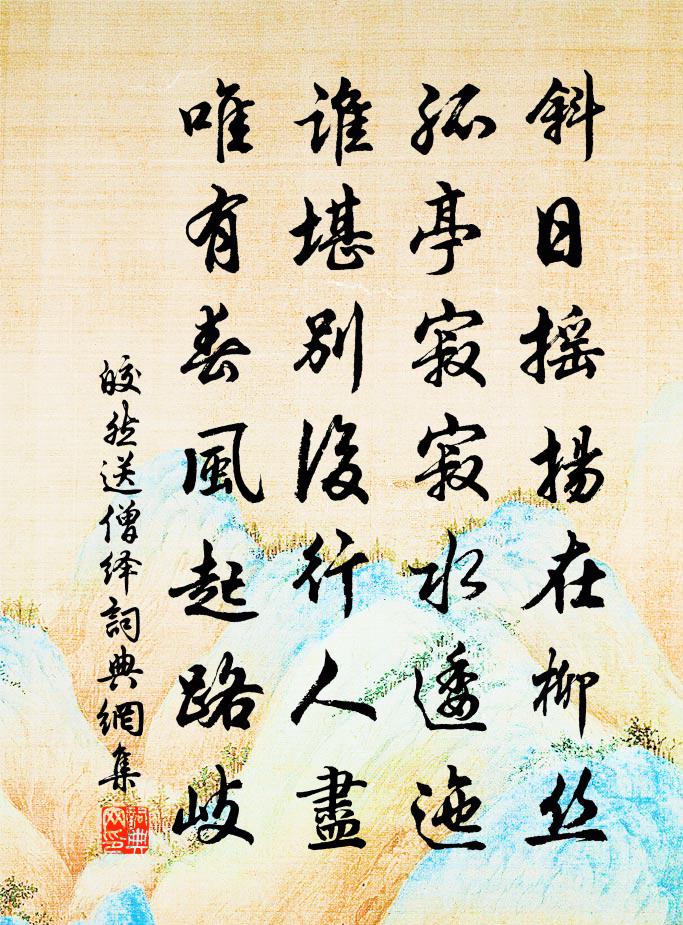 斜日摇揚在柳丝
孤亭寂寂水逶迤
誰堪別後行人盡
唯有春風起路岐
皎然送僧绎詞典網集
詞典网印